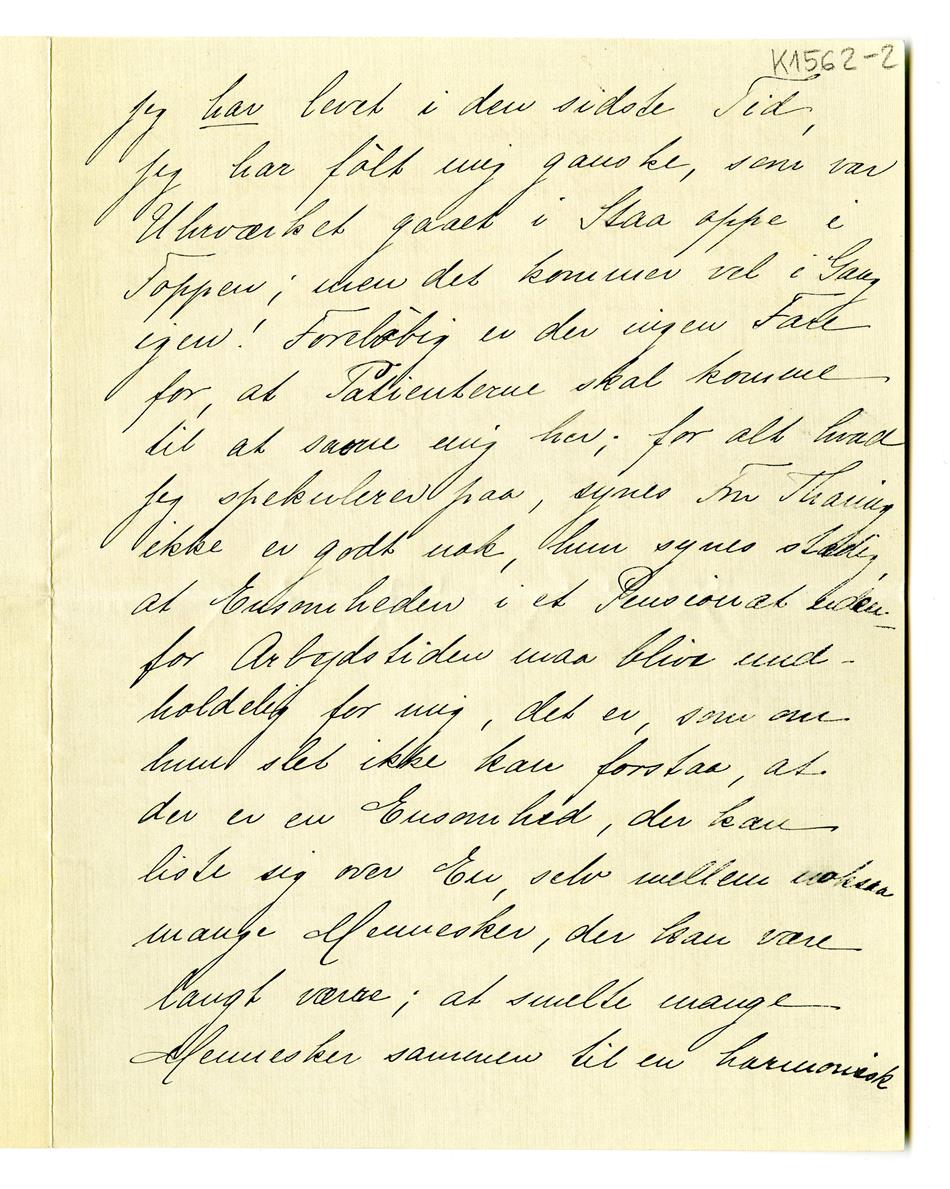 K1562-2
jeg har levet i den sidste Tid,
jeg har følt mig ganske, som var
Uhrværket gaaet i Staa oppe i
Toppen; men det kommer vel i Gang
igen! Foreløbig er der ingen Fare
for, at Patienterne skal komme
til at savne mig her; for alt hvad
jeg spekulerer paa, synes Fru Thaning
ikke er godt nok, hun synes stadig,
at Ensomheden i et Pensionat uden-
for Arbejdstiden maa blive uud-
holdelig for mig, det er, som om
hun slet ikke kan forstaa, at
der er en Ensomhed, der kan
liste sig over En, selv mellem noksaa
mange Mennesker, der kan være
langt værre; at smelte mange
Mennesker sammen til en harmonisk